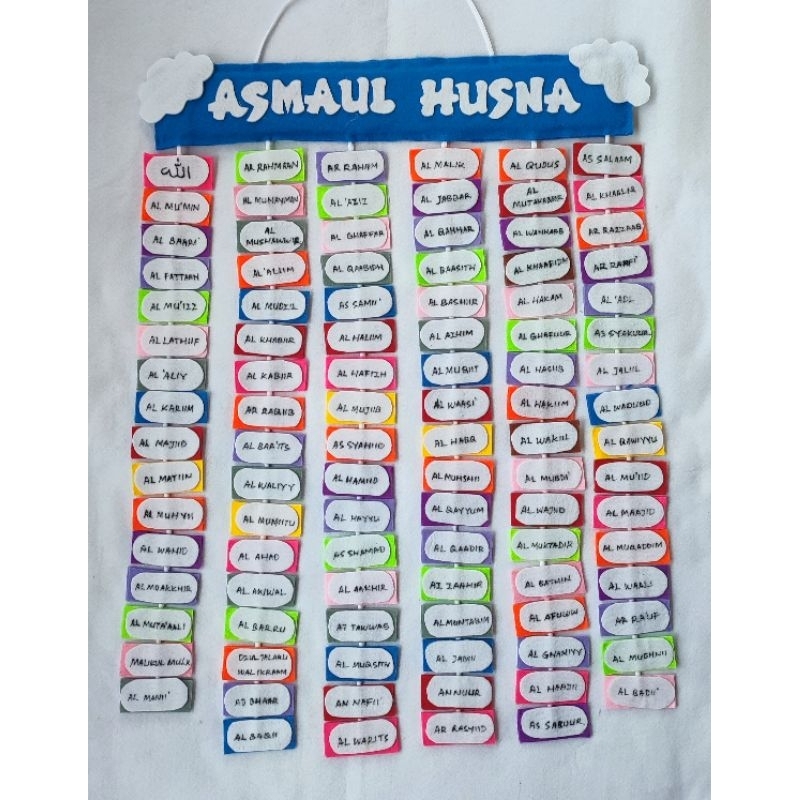 ASMAUL HUSNA
الله
AR RAHMAAN
AR RAHIIM
AL MALIK
AL QUDUS
AS SALAAM
AL MU'MIN
AL MUHAYMIN
AL 'AZIZ
AL JABBAR
AL
MUTAKABBIR
AL KHAALIQ
AL BAARI'
AL
MUSHAWWIR
AL GHAFFAR
AL QAHHAR
AL WAHHAAB
AR RAZZAAQ
AL FATTAAH
AL 'ALIIM
AL QAABIDH
AL BAASITH
AL KHAAFIDH
AR RAAFI'
AL MU'IZZ
AL MUDZIL
AS SAMII'
AL BASHIIR
AL HAKAM
AL 'ADL
AL LATHIIF
AL KHABIIR
AL HALIIM
AL AZHIIM
AL GHAFUUR
AS SYAKUUR
AL 'ALIY
AL KABIIR
AL HAFIZH
AL MUQIIT
AL HASIIB
AL JALIIL
AL KARIIM
AR RAQIIB
AL MUJIIB
AL WAASI'
AL HAKIIM
AL WADUUD
AL MAJIID
AL BAA'ITS
AS SYAHIID
AL HAQQ
AL WAKIIL
AL QAWIYYU
AL MATIIN
AL WALIYY
AL HAMIID
AL MUHSHII
AL MUBDI'
AL MU'IID
AL MUHYII
AL MUMIITU
AL HAYYU
AL QAYYUM
AL WAJID
AL MAAJID
AL WAHID
AL AHAD
AS SHAMAD
AL QAADIR
AL MUQTADIR
AL MUQADDIM
AL MUAKKHIR
AL AWWAL
AL AAKHIR
AZ ZAHHIR
AL BATHIN
AL WAALI
AL MUTA'AALI
AL BARRU
AT TAWWAB
AL MUNTAQIM
AL AFUWW
AR RA'UF
MALIKUL MULK
DZUL JALAALI
WAL IKRAAM
AL MUQSITH
AL JAMII
AL GHANIYY
AL MUGHNII
AL MANII'
AD DHAAR
AN NAFII'
AN NUUR
AL HAADII
AL BADII'
AL BAQII
AL WARITS
AR RASYIID
AS SABUUR